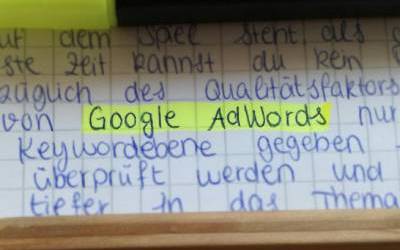 auf dem Spiel steht als
ste Zeit kannst du kein
züglich des Qualitätsfaktors
von Google AdWords nur
Keywordebene gegeben
überprüft werden und
tiefer in das Thema